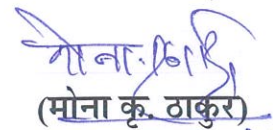 (मोना कृ. ठाकुर)